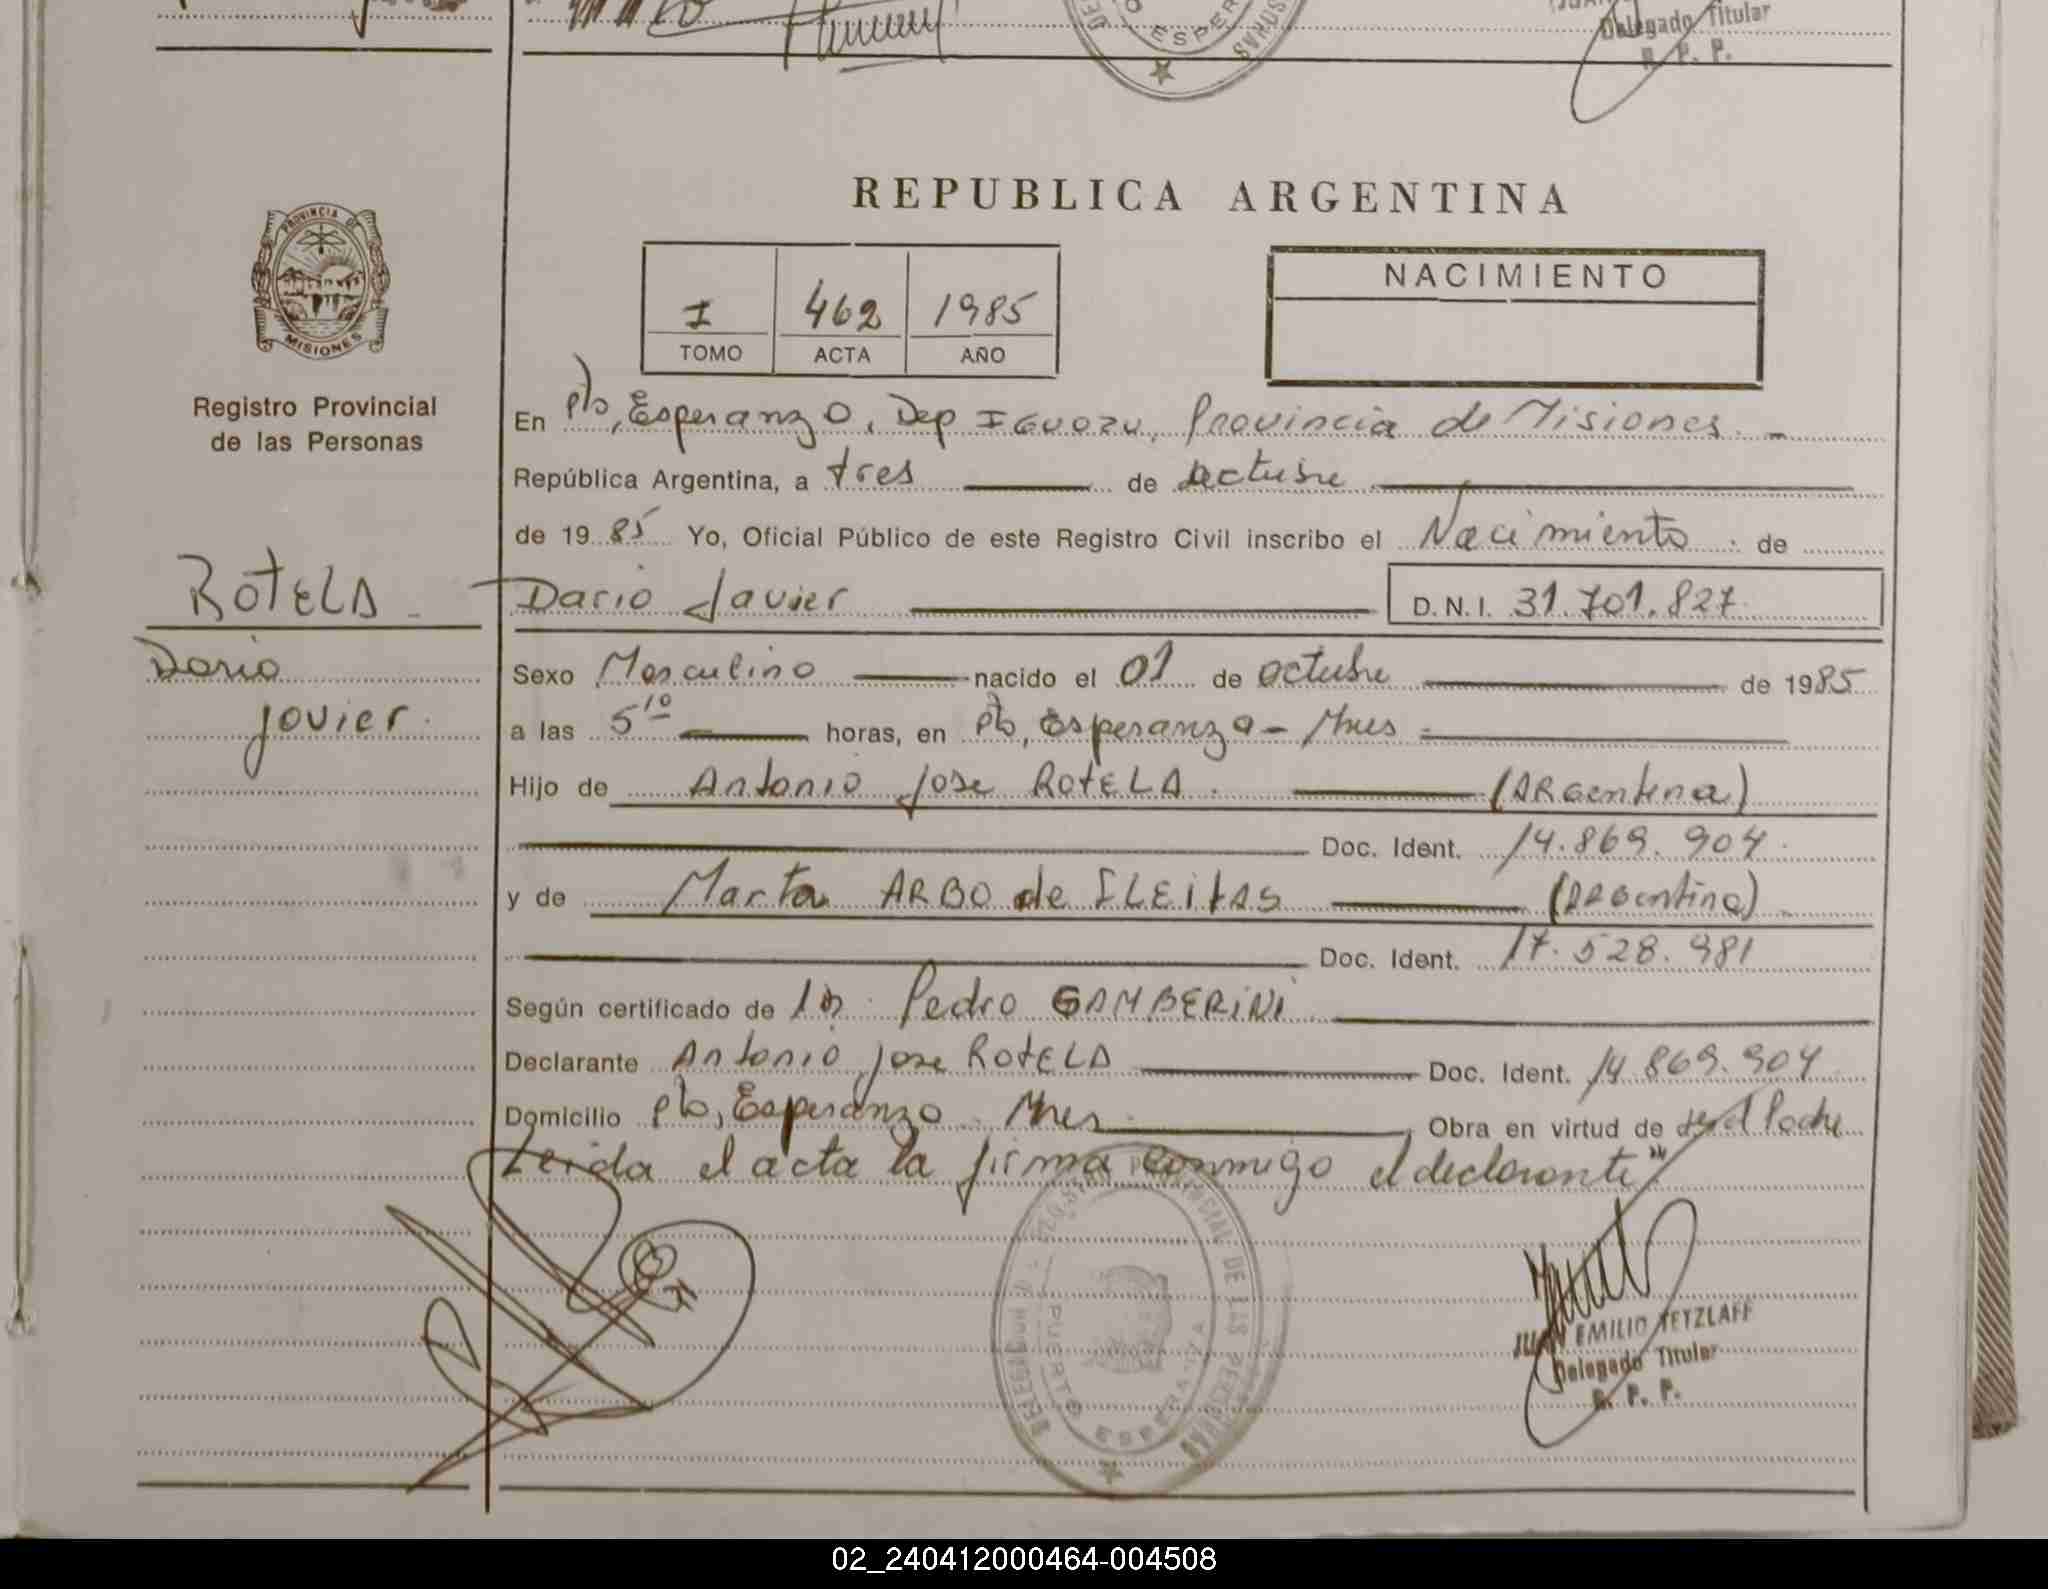 Delegado Titular
R. P. P.
REPUBLICA ARGENTINA
PROVINCIA DE
MISIONES
Registro Provincial
de las Personas
I 462 1985
TOMO ACTA AÑO
NACIMIENTO
En Pto, Esperanza, Dep IGUAZU, Provincia de Misiones. -
República Argentina, a tres de octubre
de 1985 Yo, Oficial Público de este Registro Civil inscribo el Nacimiento de
ROTELA Dario Javier D.N.I. 31.701.827
Dario
Javier.
Sexo Masculino nacido el 01 de octubre de 1985
a las 5 10 horas, en Pto, Esperanza - Mnes
Hijo de Antonio Jose ROTELA. (ARGentina)
Doc. Ident. 14.869.904
y de Marta ARBO de FLEITAS (ARGentina)
Doc. Ident. 17.528.981
Según certificado de Pedro GAMBERINI
Declarante Antonio Jose ROTELA Doc. Ident. 14.869.904
Domicilio Pto, Esperanza Mnes. Obra en virtud de ser el Padre
Leida el acta la firma conmigo el declarante"
DELEGACION REGISTRO PROVINCIAL DE LAS PERSONAS
PUERTO ESPERANZA
JUAN EMILIO TETZLAFF
Delegado Titular
R. P. P.
02_240412000464-004508